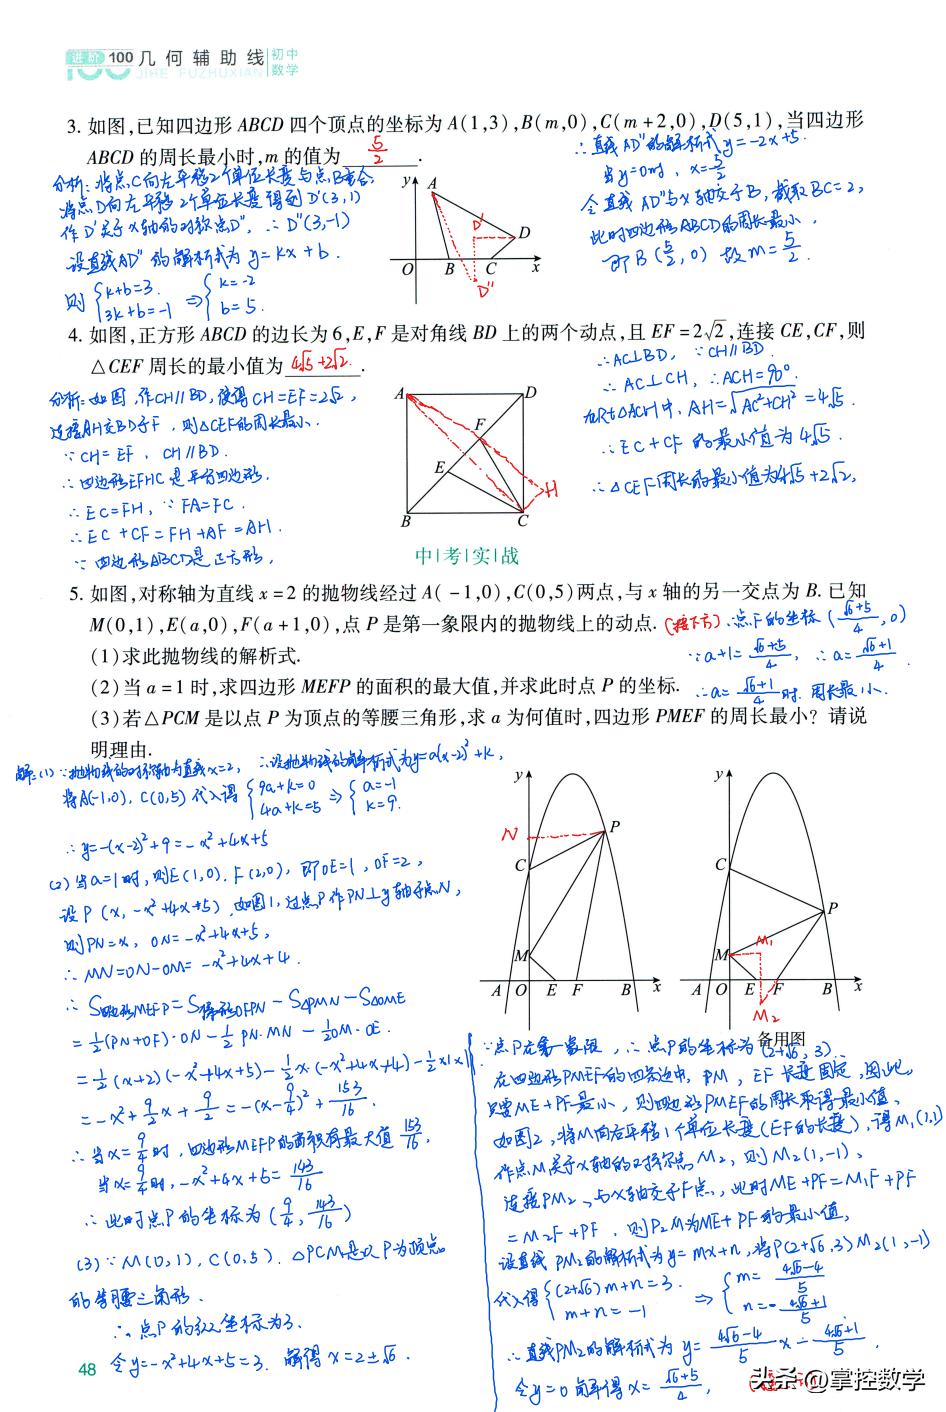 进阶100 几何辅助线 初中数学
JIHE FUZHUXIAN
3. 如图,已知四边形 ABCD 四个顶点的坐标为 A(1,3),B(m,0),C(m+2,0),D(5,1),当四边形
ABCD 的周长最小时,m 的值为 5/2 .
分析:将点C向左平移2个单位长度与点B重合,
将点D向左平移2个单位长度得到D'(3,1)
作D'关于x轴的对称点D'',∴D''(3,-1)
设直线AD''的解析式为 y=kx+b.
则 {k+b=3. 3k+b=-1 ⇒ {k=-2 b=5.
∴直线AD''的解析式 y=-2x+5.
当y=0时, x=5/2
令直线AD''与x轴交于B,截取BC=2,
此时四边形ABCD的周长最小,
即B(5/2,0) 故m=5/2.
y A D' D O B C x D''
4. 如图,正方形 ABCD 的边长为 6,E,F 是对角线 BD 上的两个动点,且 EF=2√2,连接 CE,CF,则
△CEF 周长的最小值为 4√5+2√2 .
分析:如图,作CH∥BD,使得CH=EF=2√2,
连接AH交BD于F,则△CEF的周长最小.
∵CH=EF, CH∥BD.
∴四边形EFHC是平行四边形.
∴EC=FH,∵FA=FC.
∴EC+CF=FH+AF=AH.
∵四边形ABCD是正方形,
∴AC⊥BD, ∵CH∥BD.
∴AC⊥CH,∴ACH=90°.
在Rt△ACH中, AH=√AC²+CH²=4√5.
∴EC+CF的最小值为4√5.
∴△CEF周长的最小值为4√5+2√2,
A D F E H B C
中|考|实|战
5. 如图,对称轴为直线 x=2 的抛物线经过 A(-1,0),C(0,5)两点,与 x 轴的另一交点为 B. 已知
M(0,1),E(a,0),F(a+1,0),点 P 是第一象限内的抛物线上的动点.
(1)求此抛物线的解析式.
(2)当 a=1 时,求四边形 MEFP 的面积的最大值,并求此时点 P 的坐标.
(3)若△PCM 是以点 P 为顶点的等腰三角形,求 a 为何值时,四边形 PMEF 的周长最小? 请说
明理由.
(接下方)∴点F的坐标(√6+5/4,0)
∵a+1=√6+5/4,∴a=√6+1/4.
∴a=√6+1/4时,周长最小.
解:(1)∵抛物线的对称轴为直线x=2, ∴设抛物线的解析式为y=a(x-2)²+k,
将A(-1,0), C(0,5)代入得 {9a+k=0 4a+k=5 ⇒ {a=-1 k=9.
∴y=-(x-2)²+9=-x²+4x+5
(2)当a=1时,则E(1,0),F(2,0),即OE=1,OF=2,
设P(x,-x²+4x+5),如图1,过点P作PN⊥y轴于点N,
则PN=x, ON=-x²+4x+5,
∴MN=ON-OM=-x²+4x+4.
∴S四边形MEFP=S梯形OFPN-S△PMN-S△OME
=1/2(PN+OF)·ON-1/2PN·MN-1/2OM·OE.
=1/2(x+2)(-x²+4x+5)-1/2x·(-x²+4x+4)-1/2×1×1
=-x²+9/2x+9/2=-(x-9/4)²+153/16.
∴当x=9/4时,四边形MEFP的面积有最大值153/16,
当x=9/4时,-x²+4x+5=143/16
∴此时点P的坐标为(9/4,143/16)
(3)∵M(0,1), C(0,5). △PCM是以P为顶点
的等腰三角形.
∴点P的纵坐标为3.
令y=-x²+4x+5=3. 解得x=2±√6.
y N P C M A O E F B x
y C P M M₁ A O E F B x M₂
备用图
∵点P在第一象限,∴点P的坐标为(2+√6,3).
在四边形PMEF的四条边中,PM,EF长度固定,因此,
只要ME+PF最小,则四边形PMEF的周长取得最小值,
如图2,将M向右平移1个单位长度(EF的长度),得M₁(1,1)
作点M₁关于x轴的对称点M₂,则M₂(1,-1).
连接PM₂,与x轴交于F点,此时ME+PF=M₁F+PF
=M₂F+PF,则P₂M为ME+PF的最小值,
设直线PM₂的解析式为y=mx+n,将P(2+√6,3)M₂(1,-1)
代入得 {(2+√6)m+n=3. m+n=-1 ⇒ {m=4√6-4/5 n=-4√6+1/5
∴直线PM₂的解析式为y=4√6-4/5x-4√6+1/5.
令y=0解得x=√6+5/4,
48
头条@掌控数学